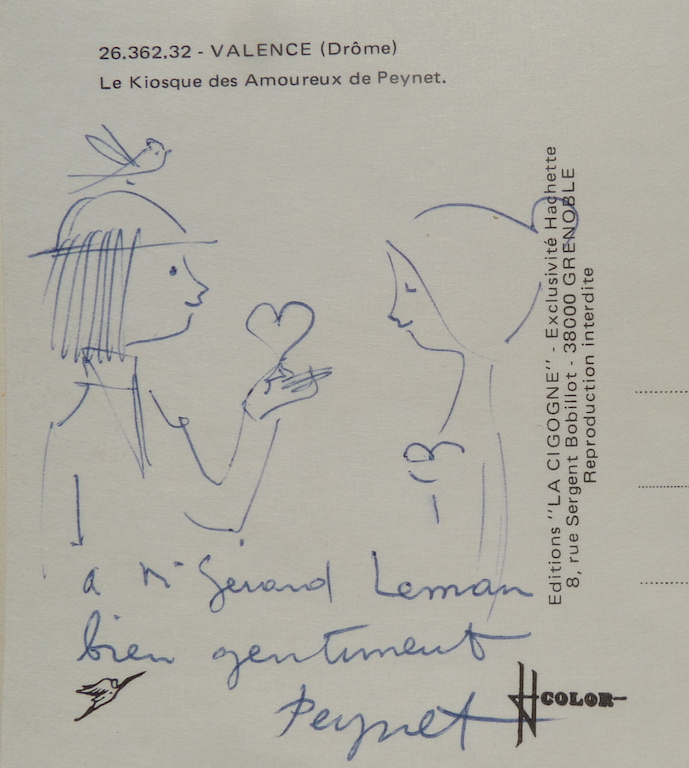 26.362.32 - VALENCE (Drôme)
Le Kiosque des Amoureux de Peynet.
Editions "LA CIGOGNE" - Exclusivité Hachette
8, rue Sergent Bobillot - 38000 GRENOBLE
Reproduction interdite
a Mr Gérard Leman
bien gentiment
Peynet
COLOR